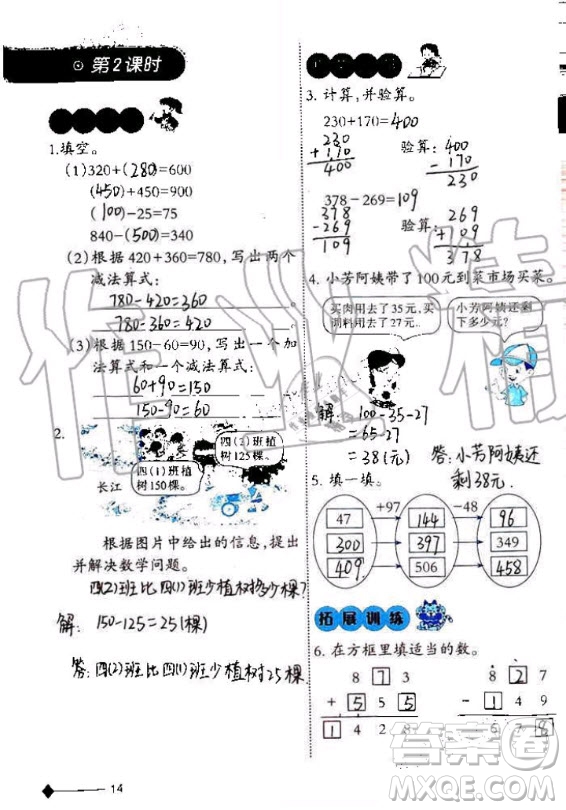 第2课时
1.填空。
(1)320+(280)=600
(450)+450=900
(100)-25=75
840-(500)=340
(2)根据420+360=780,写出两个
减法算式:
780-420=360
780-360=420
(3)根据150-60=90,写出一个加
法算式和一个减法算式:
60+90=150
150-90=60
2.
四(2)班植
树125棵。
四(1)班植
树150棵。
长江
根据图片中给出的信息,提出
并解决数学问题。
四(2)班比四(1)班少植树多少棵?
解: 150-125=25(棵)
答:四(2)班比四(1)班少植树25棵.
14
3.计算,并验算。
230+170=400
230
+170
400
验算:
400
-170
230
378-269=109
378
-269
109
验算:
269
+109
378
4.小芳阿姨带了100元到菜市场买菜。
买肉用去了35元,买
调料用去了27元。
小芳阿姨还剩
下多少元?
解: 100-35-27
=65-27
=38(元)
答:小芳阿姨还
剩38元.
5.填一填。
+97 -48
47 144 96
300 397 349
409 506 458
拓展训练
6.在方框里填适当的数。
8 7 3
+ 5 5 5
1 4 2 8
8 2 7
- 1 4 9
6 7 8
作业精
答案圈
MXQE.COM